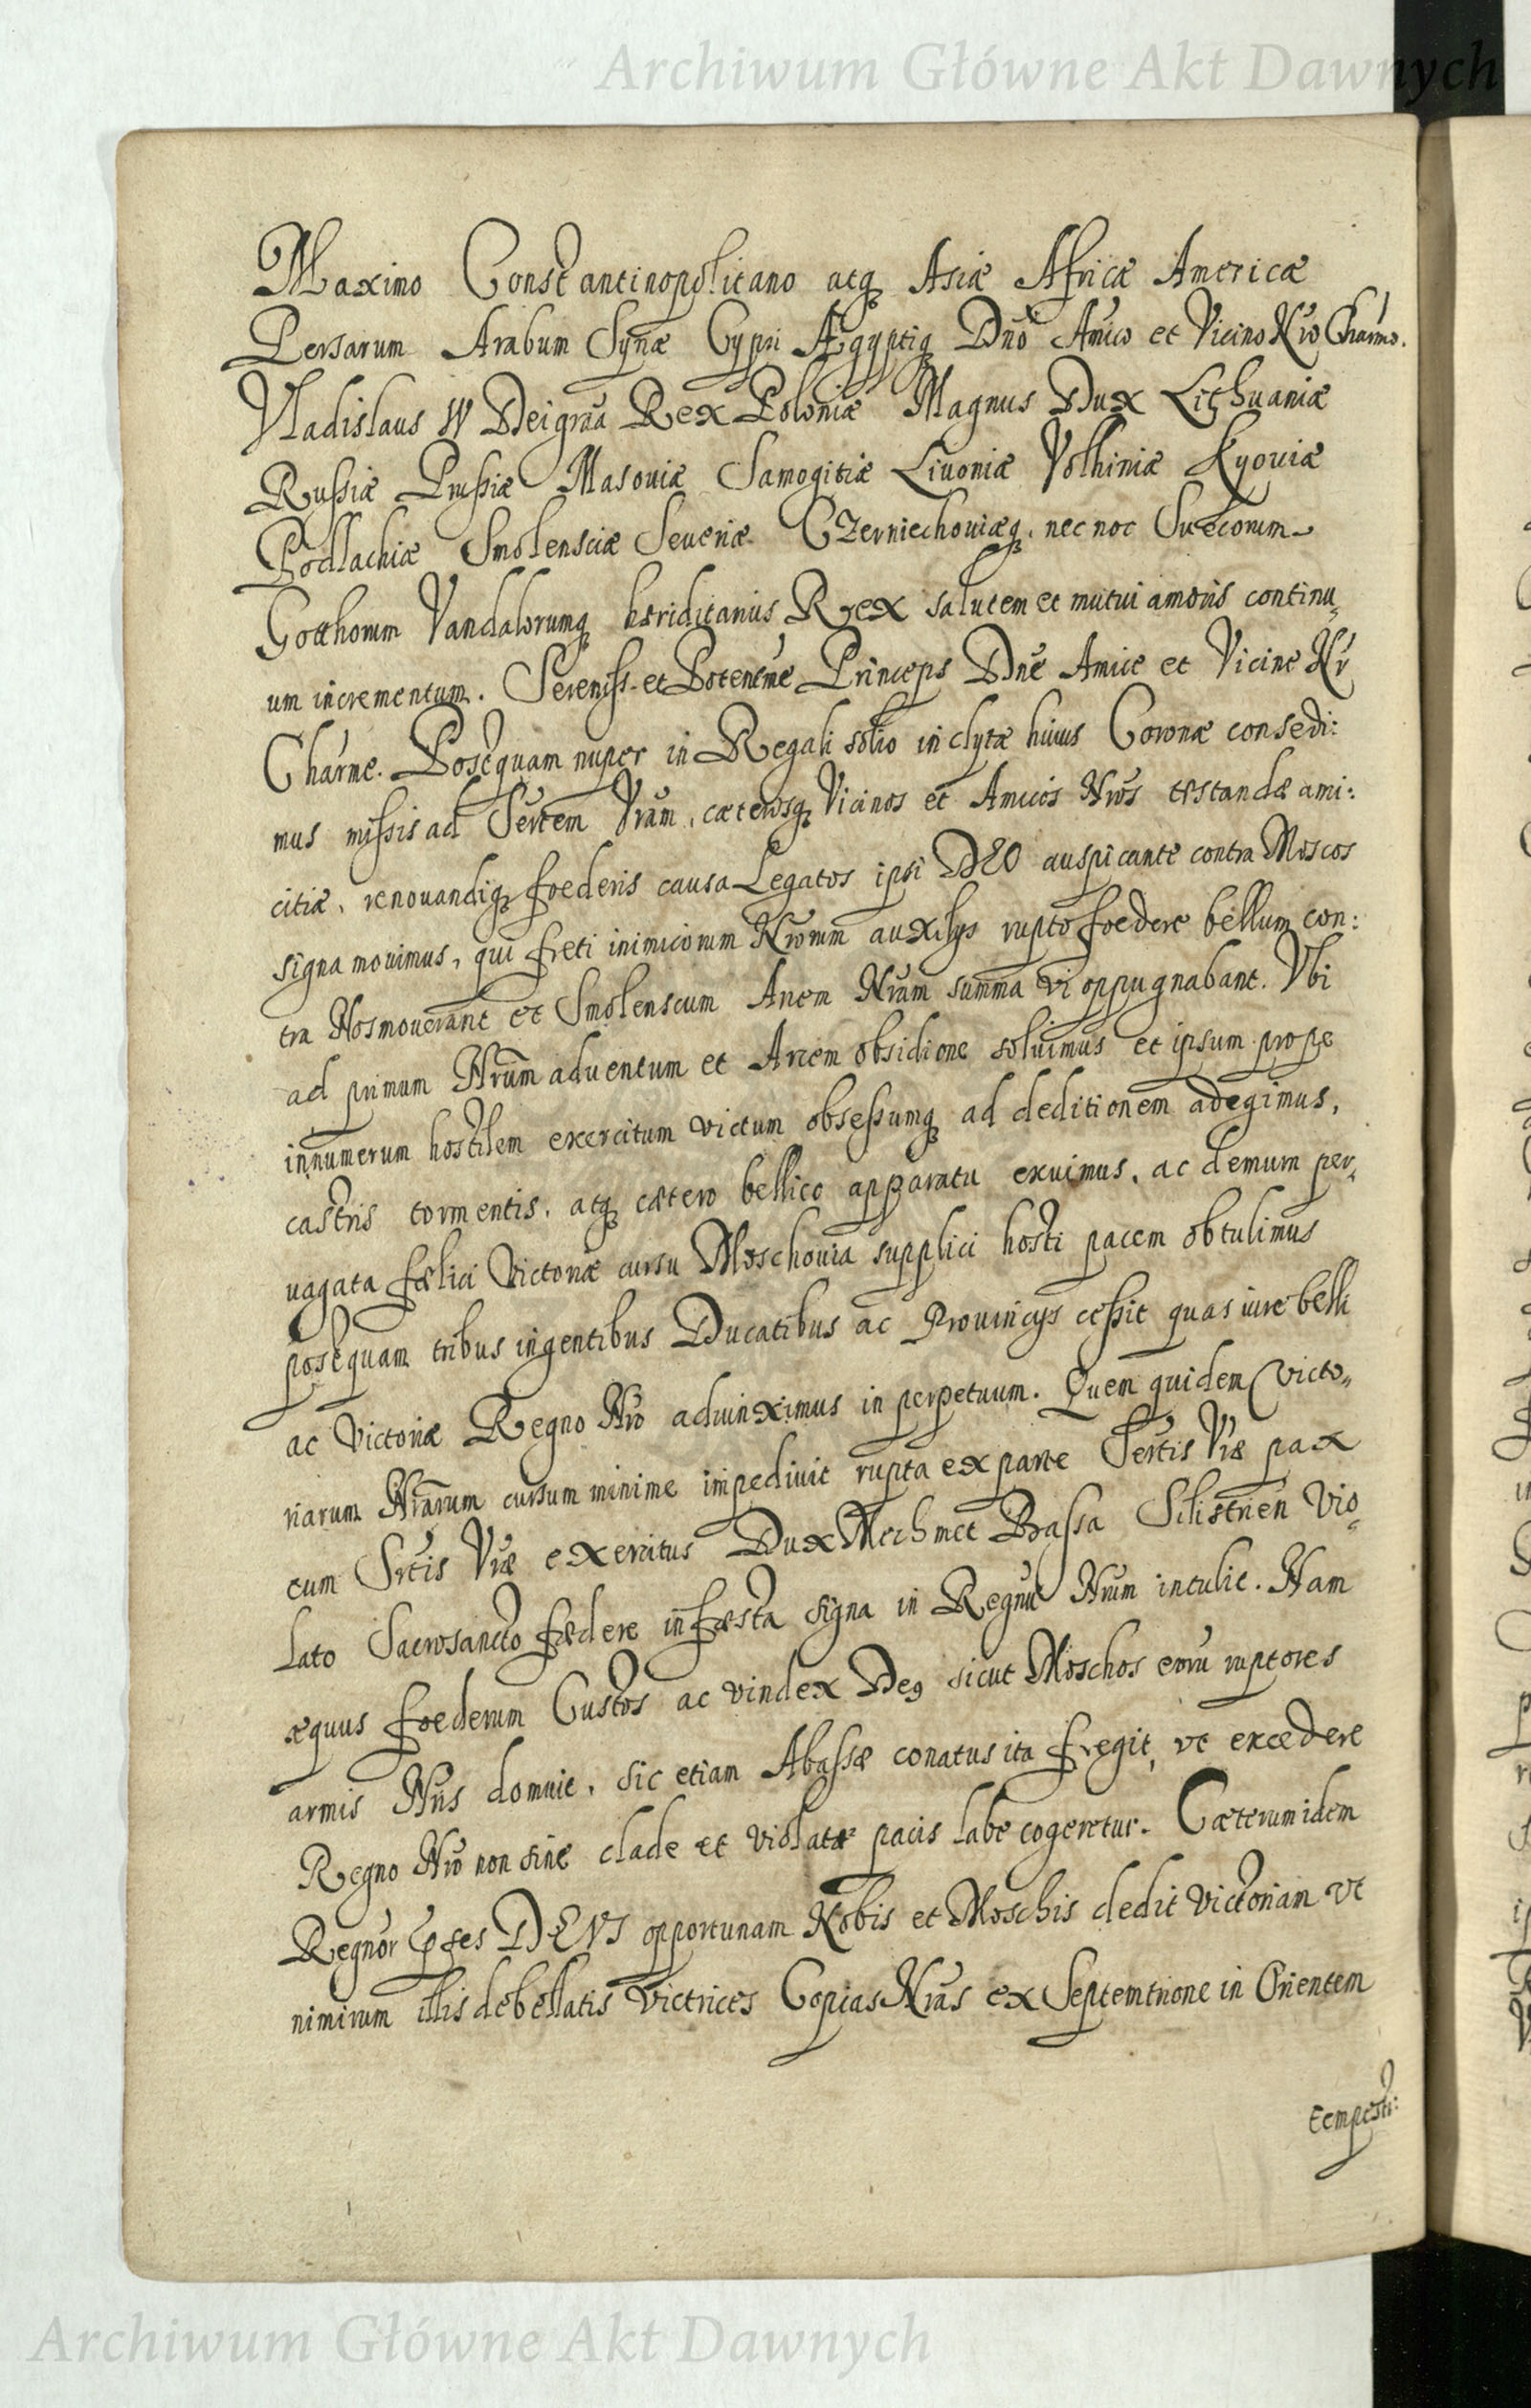 Archiwum Główne Akt Dawnych
Maximo Constantinopolitano atq Asiæ Africæ Americæ
Persarum Arabum Synæ Cypri Ægyptiq Dno Amico et Vicino Nro Charmo.
Vladislaus IV Dei gratia Rex Poloniæ Magnus Dux Lithuaniæ
Russiæ Prussiæ Masouiæ Samogitiæ Liuoniæ Volhiniæ Kyouiæ
Podlachiæ Smolensciæ Seueriæ Czerniechouiæq. nec noc Suecorum
Gotthorum Vandalorumq heriditarius Rex salutem et mutui amoris continu
um incrementum. Sereniss. et Potentme Princeps Dne Amice et Vicine Nr
Charme. Postquam nuper in Regali solio inclytæ huius Coronæ consedi:
mus missis ad Sertem Vram, cæterosq Vicinos et Amicos Nros testandæ ami:
citiæ, renouandiq foederis causa Legatos ipsi DEO auspicante contra Moscos
signa mouimus, qui freti inimicorum Nrorum auxilys rupto foedere bellum con:
tra Nos mouerant et Smolenscum Arcem Nram summa vi oppugnabant. Vbi
ad primum Nrum aduentum et Arcem obsidione soluimus et ipsum prope
innumerum hostilem exercitum victum obsessumq ad deditionem adegimus,
castris tormentis, atq cætero bellico apparatu exuimus, ac demum per
uagata fælici Victoriæ cursu Moschouia supplici hosti pacem obtulimus
postquam tribus ingentibus Ducatibus ac Prouincijs cessit quas iure belli
ac Victoriæ Regno Nro adiunximus in perpetuum. Quem quidem victo
riarum Nrarum cursum minime impediuit rupta ex parte Sertis Vræ pax
cum Srtis Vræ exercitus Dux Mechmet Bassa Silistrien Vio
lato Sacrosancto fædere infæsta signa in Regnu Nrum intulit. Nam
æquus foederum Custos ac vindex Deq sicut Moschos eoru ruptores
armis Nris domuit, sic etiam Abassæ conatus ita fregit, vt excedere
Regno Nro non sine clade et violatæ pacis labe cogeretur. Cæterum idem
Regnor DEVS opportunam Nobis et Moschis dedit victoriam vt
nimirum illis debellatis Victrices Copias Nras ex Septemtrione in Orientem
tempesti:
Archiwum Główne Akt Dawnych